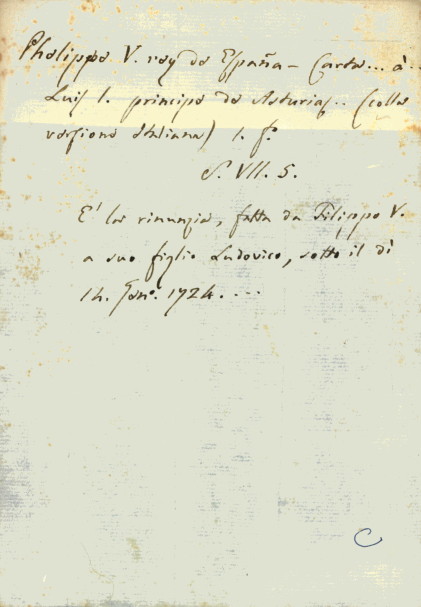 Phelippe V. rey de España - Carta... à..
Luis I. principe de Asturias.. (colla
versione Italiana) 1. fº
S. VII. 5.
E' la rinunzia, fatta da Filippo V.
a suo figlio Ludovico, sotto il dì
14. Genº. 1724. ...
C